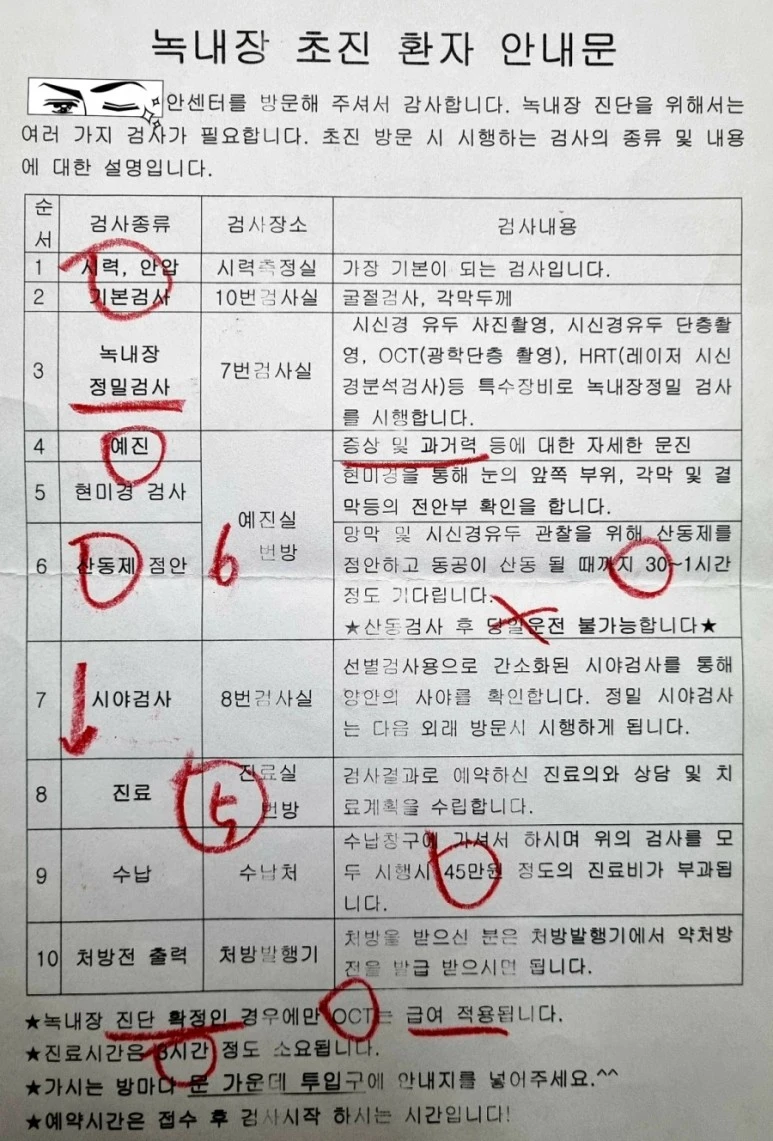 녹내장 초진 환자 안내문
안센터를 방문해 주셔서 감사합니다. 녹내장 진단을 위해서는
여러 가지 검사가 필요합니다. 초진 방문 시 시행하는 검사의 종류 및 내용
에 대한 설명입니다.
순서 검사종류 검사장소 검사내용
1 시력, 안압 시력측정실 가장 기본이 되는 검사입니다.
2 기본검사 10번검사실 굴절검사, 각막두께
3 녹내장 정밀검사 7번검사실 시신경 유두 사진촬영, 시신경유두 단층촬
영, OCT(광학단층 촬영), HRT(레이저 시신
경분석검사)등 특수장비로 녹내장정밀 검사
를 시행합니다.
4 예진 증상 및 과거력 등에 대한 자세한 문진
5 현미경 검사 현미경을 통해 눈의 앞쪽 부위, 각막 및 결
막등의 전안부 확인을 합니다.
예진실
6 번방
6 산동제 점안 망막 및 시신경유두 관찰을 위해 산동제를
점안하고 동공이 산동 될 때까지 30~1시간
정도 기다립니다.
★산동검사 후 당일운전 불가능합니다★
7 시야검사 8번검사실 선별검사용으로 간소화된 시야검사를 통해
양안의 시야를 확인합니다. 정밀 시야검사
는 다음 외래 방문시 시행하게 됩니다.
8 진료 진료실 5 번방 검사결과로 예약하신 진료의와 상담 및 치
료계획을 수립합니다.
9 수납 수납처 수납창구에 가셔서 하시며 위의 검사를 모
두 시행시 45만원 정도의 진료비가 부과됩
니다.
10 처방전 출력 처방발행기 처방을 받으신 분은 처방발행기에서 약처방
전을 발급 받으시면 됩니다.
★녹내장 진단 확정인 경우에만 OCT는 급여 적용됩니다.
★진료시간은 3시간 정도 소요됩니다.
★가시는 방마다 문 가운데 투입구에 안내지를 넣어주세요.^^
★예약시간은 접수 후 검사시작 하시는 시간입니다!